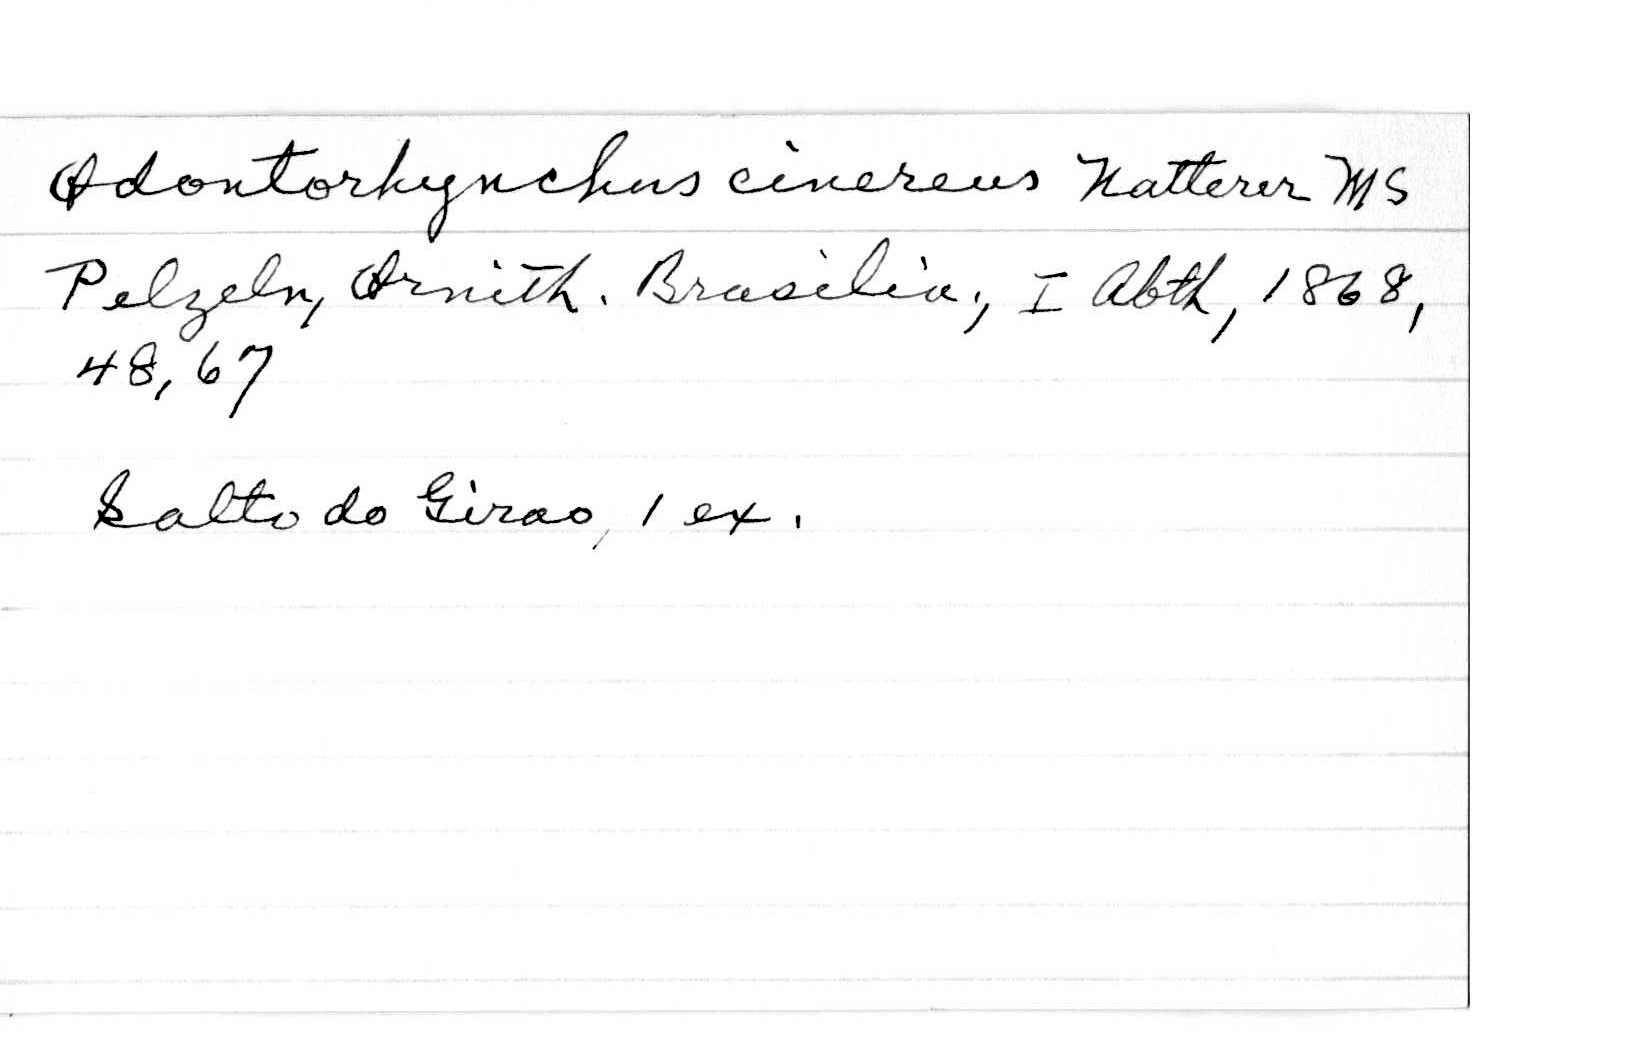 Odontorhynchus cinereus Natterer MS
Pelzeln, Ornith. Brasilia., I Abth, 1868,
48, 67
Salto do Girao, 1 ex.